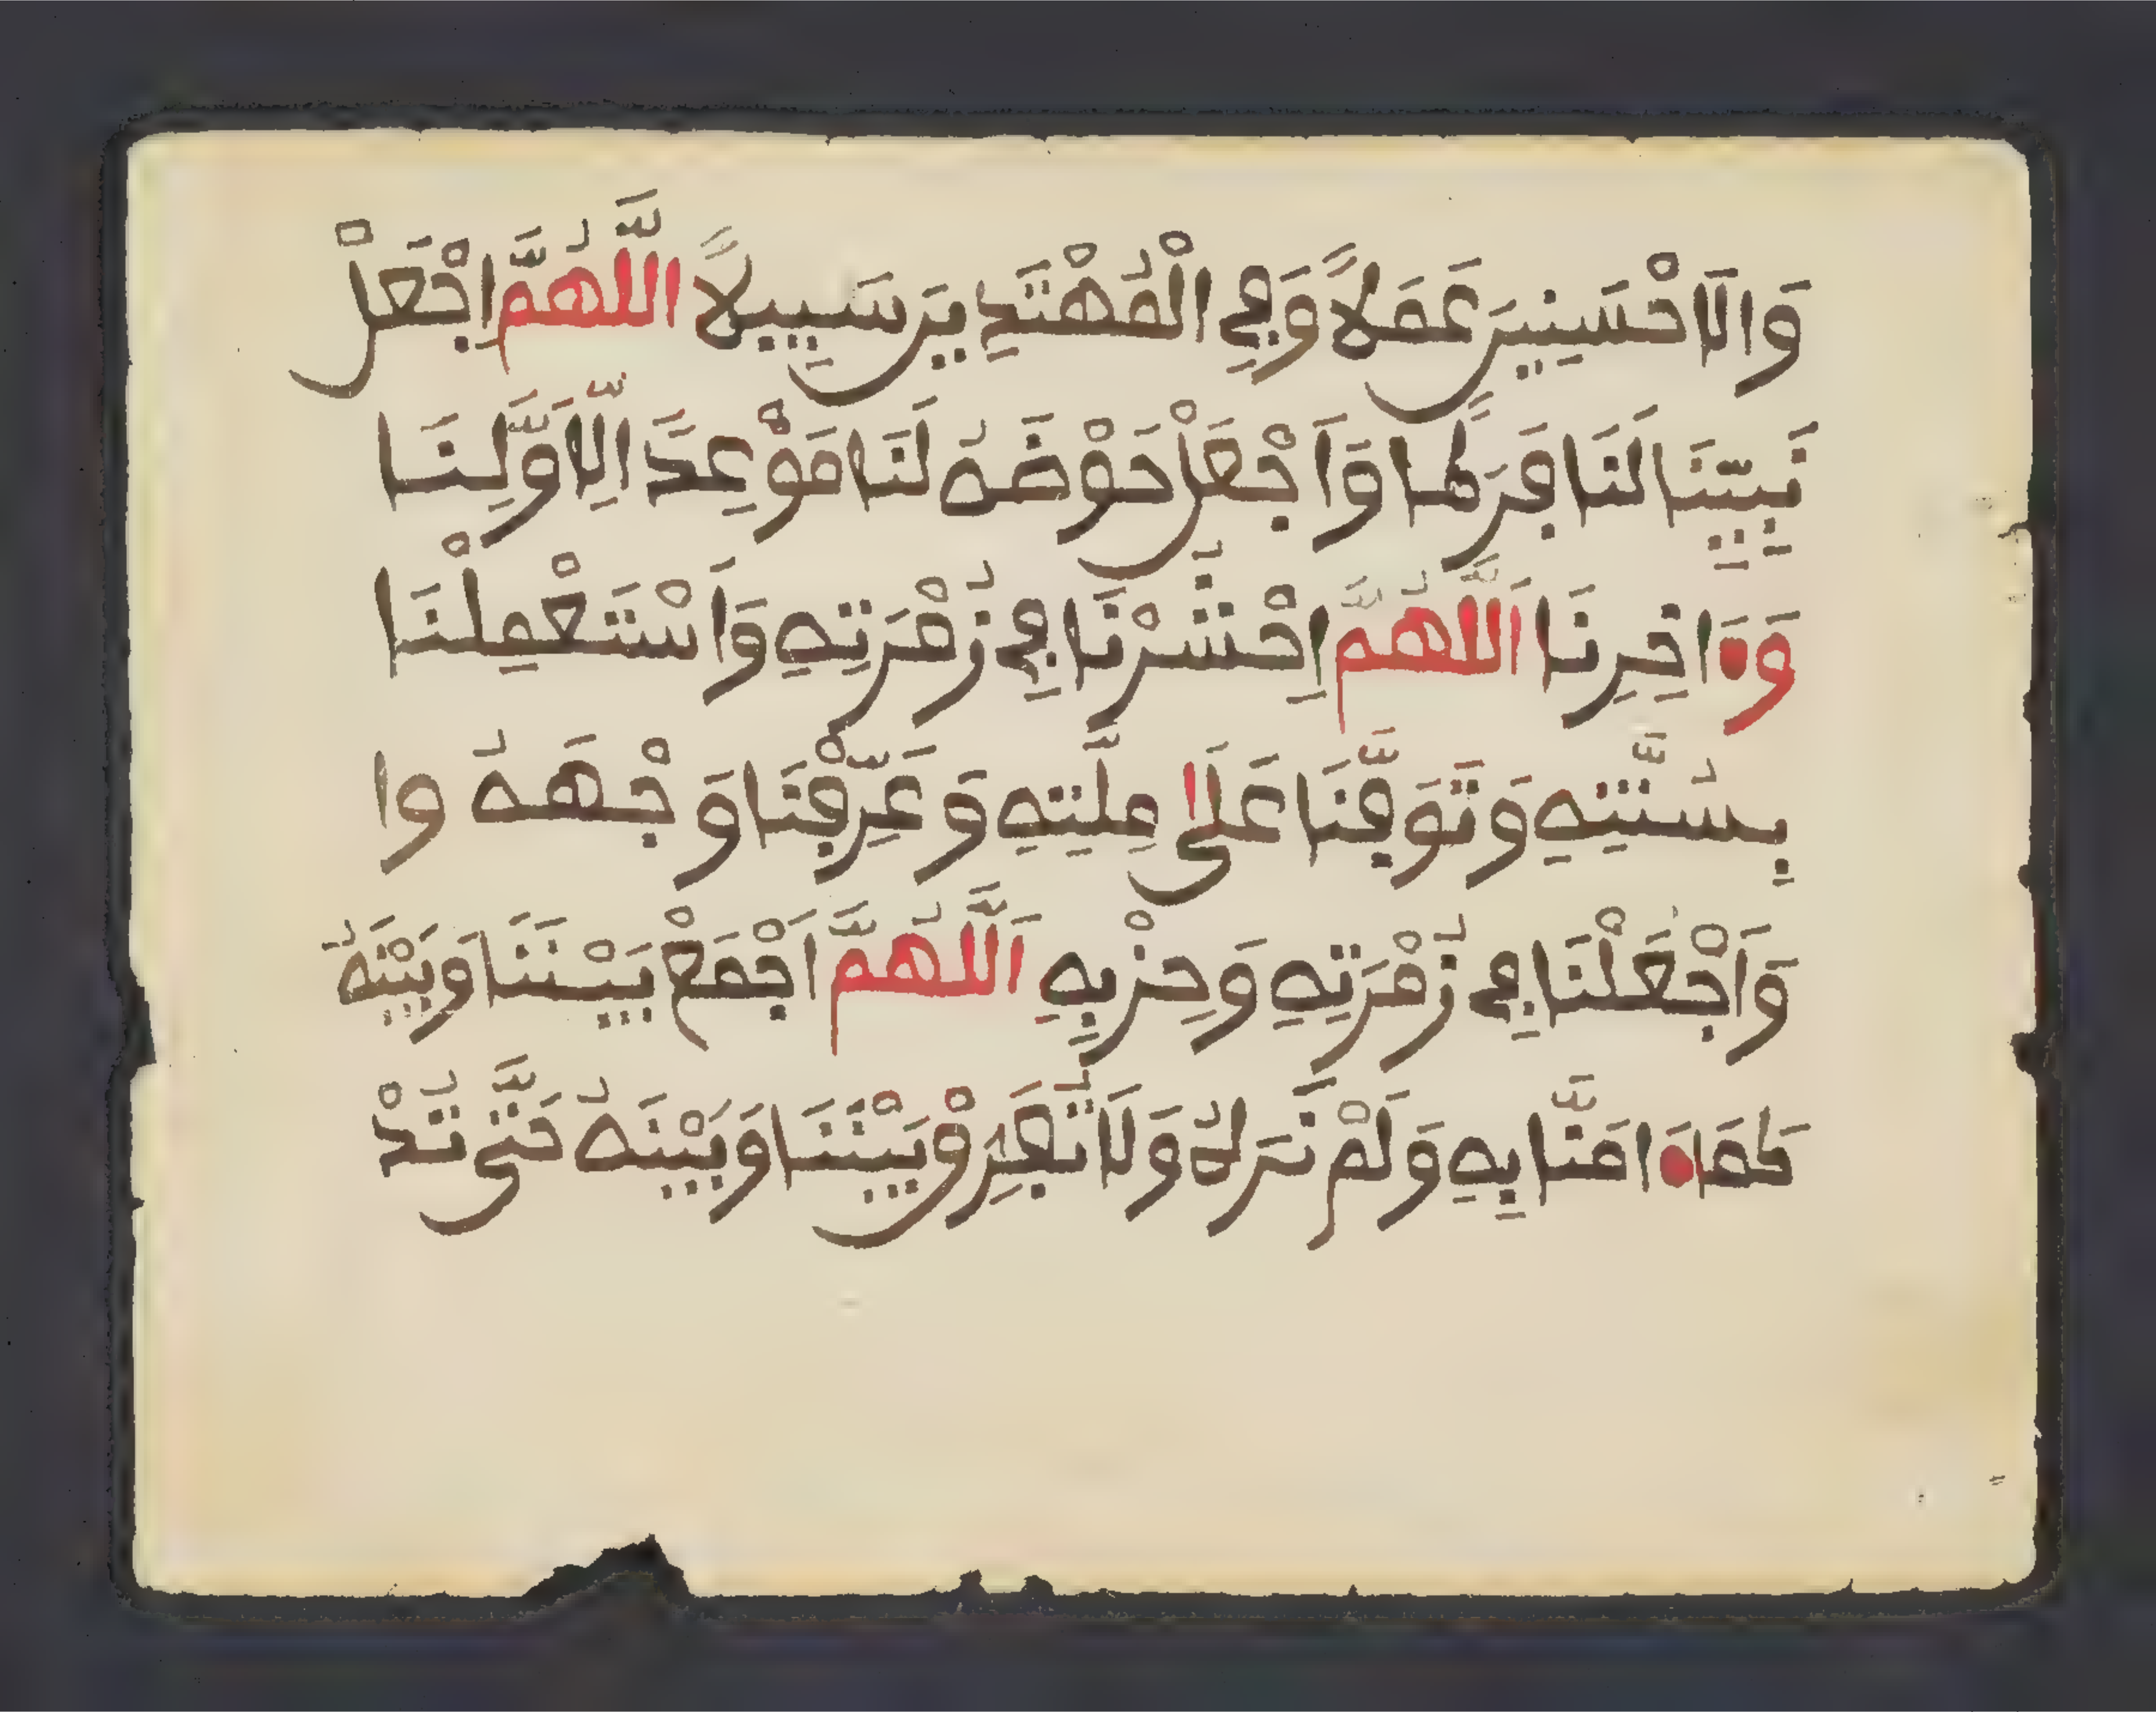 وَالَاحْسَنِينَ عَمَلاً وَفِي الْمُهْتَدِينَ سَبِيلاً اللَّهُمَّ اجْعَلْ
نَبِيِّنَا لَنَا فَرَطًا وَاَجْعَلْ حَوْضَهُ لَنَا مَوْعِدًا لِّاَوَّلِنَا
وَءَاخِرِنَا اَللَّهُمَّ اِحْشُرْنَا فِي زُمْرَتِهِ وَاَسْتَعْمِلْنَا
بِسُنَّتِهِ وَتَوَفَّنَا عَلَى مِلَّتِهِ وَعَرِّفْنَا وَجْهَهُ وا
وَاَجْعَلْنَا فِي زُمْرَتِهِ وَحِزْبِهِ اَللَّهُمَّ اَجْمَعْ بَيْنَنَا وَبَيْنَهُ
كَمَا ءَامَنَّا بِهِ وَلَمْ نَرَهُ وَلَا تُفَرِّقْ بَيْنَنَا وَبَيْنَهُ حَتَّى تُدْ